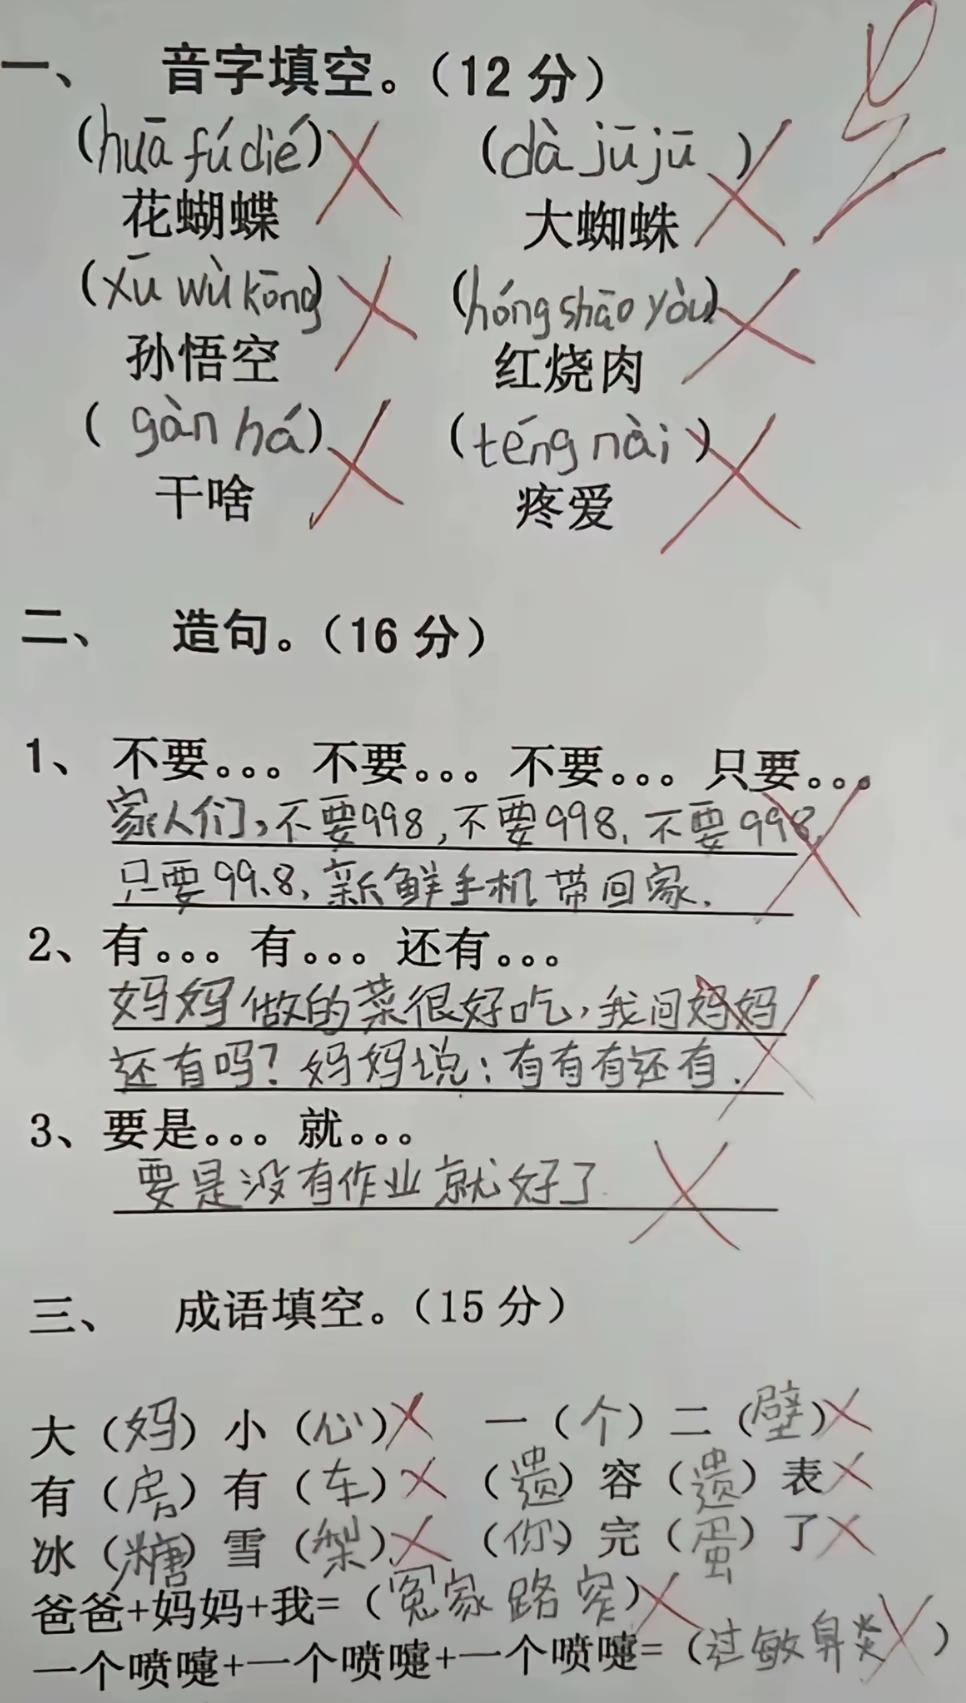 一、 音字填空。(12分)
(huā fú dié) (dà jū jū )
花蝴蝶 大蜘蛛
(xū wù kōng) (hóng shāo yòu)
孙悟空 红烧肉
( gàn há) (téng nài )
干啥 疼爱
二、 造句。(16分)
1、 不要。。。不要。。。不要。。。只要。。。
家人们,不要998,不要998,不要998,
只要99.8,新鲜手机带回家.
2、有。。。有。。。还有。。。
妈妈做的菜很好吃,我问妈妈
还有吗?妈妈说:有有有还有.
3、要是。。。就。。。
要是没有作业就好了
三、 成语填空。(15分)
大(妈)小(心) 一(个)二(壁)
有(房)有(车) (遗)容(遗)表
冰(糖)雪(梨) (你)完(蛋)了
爸爸+妈妈+我=(冤家路窄)
一个喷嚏+一个喷嚏+一个喷嚏=(过敏鼻炎)